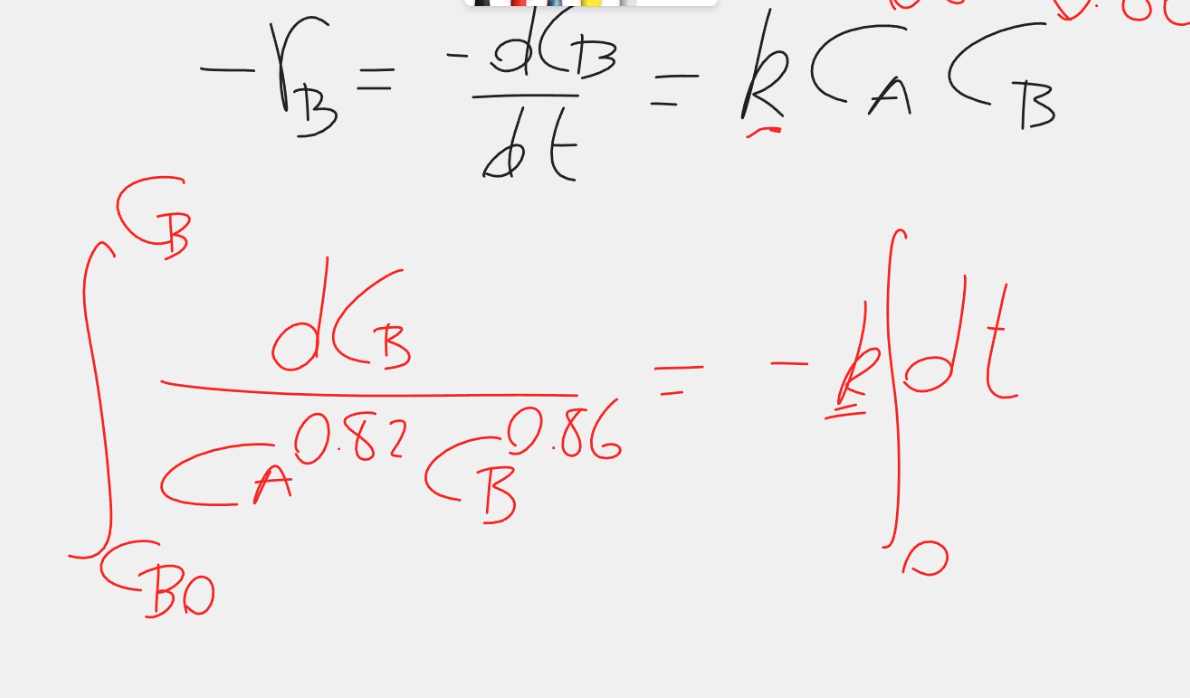 -r_B = -dC_B/dt = k C_A C_B
∫_{C_B0}^{C_B} dC_B / (C_A^{0.82} C_B^{0.86}) = -k ∫_0 dt